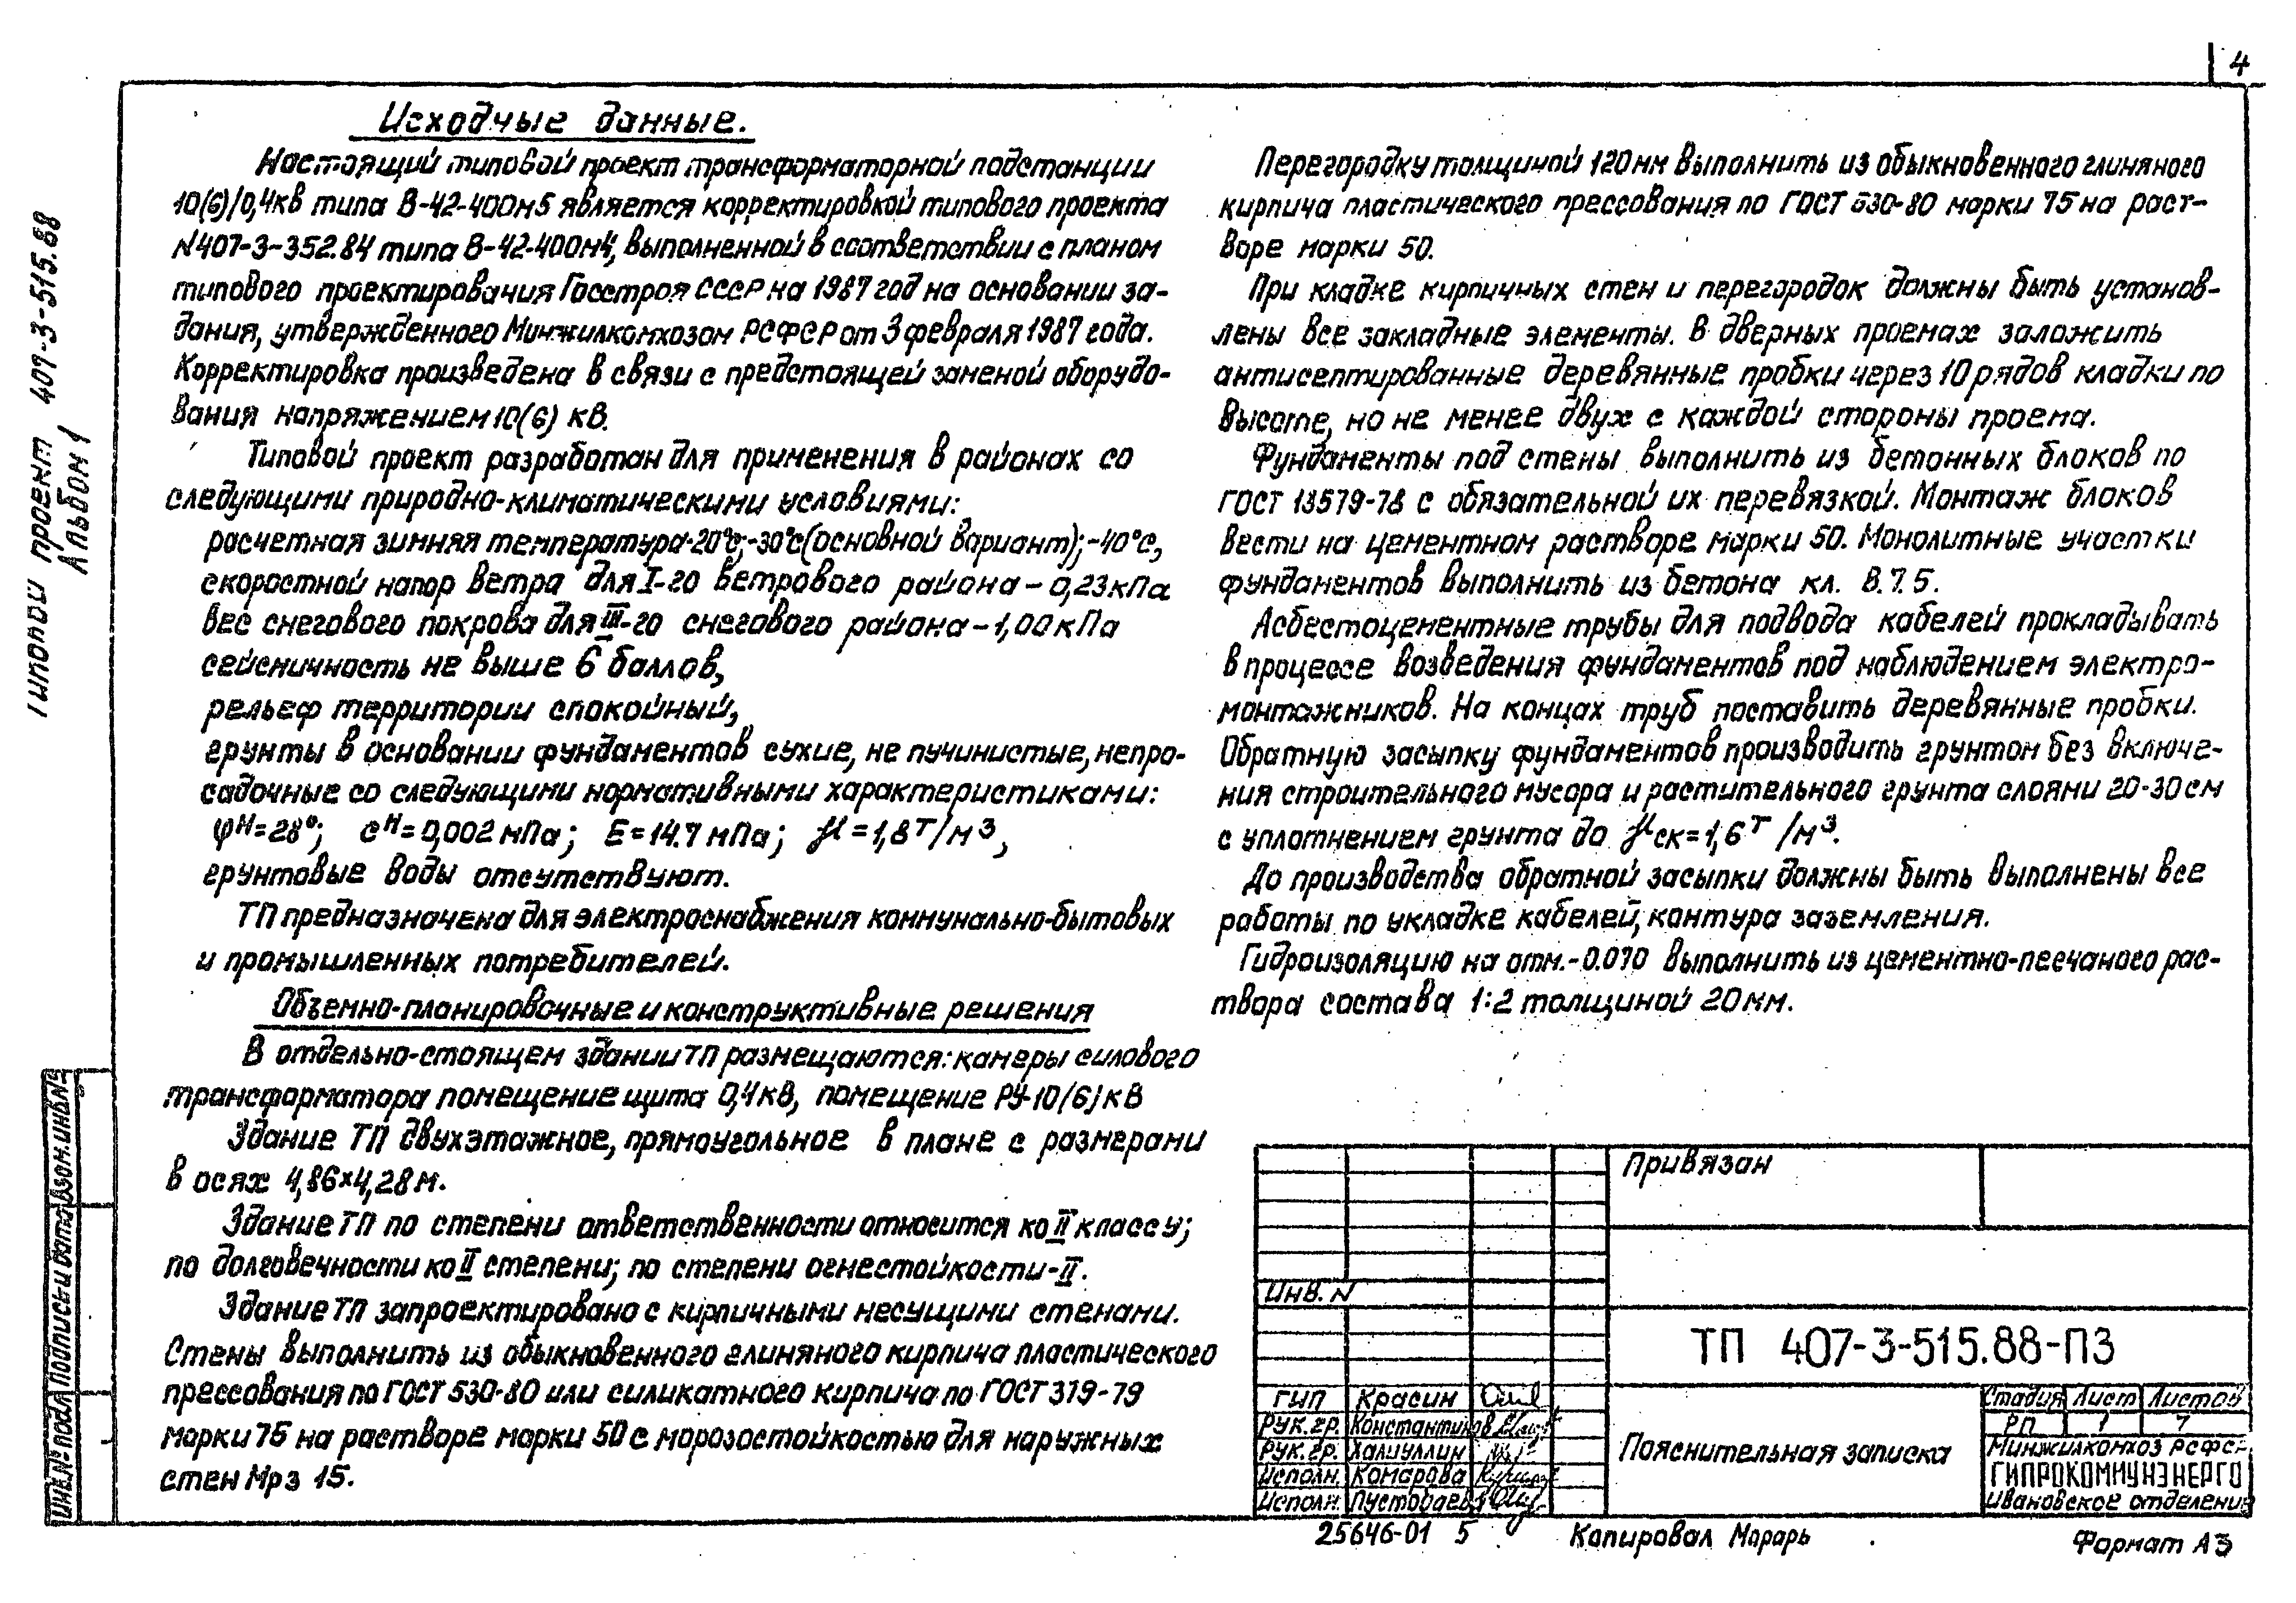 4
Типовой проект 407-3-515.88
Альбом 1
Исходные данные.
Настоящий типовой проект трансформаторной подстанции
10(6)/0,4кв типа В-42-400м5 является корректировкой типового проекта
N407-3-352.84 типа В-42-400м4, выполненной в соответствии с планом
типового проектирования Госстроя СССР на 1987 год на основании за-
дания, утвержденного Минжилкомхозом РСФСР от 3 февраля 1987 года.
Корректировка произведена в связи с предстоящей заменой оборудо-
вания напряжением 10(6) кВ.
Типовой проект разработан для применения в районах со
следующими природно-климатическими условиями:
расчетная зимняя температура-20°с;-30°с(основной вариант);-40°с,
скоростной напор ветра для I-го ветрового района - 0,23кПа
вес снегового покрова для III-го снегового района - 1,00кПа
сейсмичность не выше 6 баллов,
рельеф территории спокойный,
грунты в основании фундаментов сухие, не пучинистые, непро-
садочные со следующими нормативными характеристиками:
φᴴ=28°; сᴴ=0,002мПа; Е=14.7мПа; γ=1,8т/м³,
грунтовые воды отсутствуют.
ТП предназначена для электроснабжения коммунально-бытовых
и промышленных потребителей.
Объемно-планировочные и конструктивные решения
В отдельно-стоящем здании ТП размещаются: камеры силового
трансформатора помещение щита 0,4кВ, помещение РУ-10(6)кВ
Здание ТП двухэтажное, прямоугольное в плане с размерами
в осях 4,86×4,28м.
Здание ТП по степени ответственности относится ко II классу;
по долговечности ко II степени; по степени огнестойкости-II.
Здание ТП запроектировано с кирпичными несущими стенами.
Стены выполнить из обыкновенного глиняного кирпича пластического
прессования по ГОСТ 530-80 или силикатного кирпича по ГОСТ 379-79
марки 75 на растворе марки 50 с морозостойкостью для наружных
стен Мрз 15.
Перегородку толщиной 120мм выполнить из обыкновенного глиняного
кирпича пластического прессования по ГОСТ 530-80 марки 75 на раст-
воре марки 50.
При кладке кирпичных стен и перегородок должны быть установ-
лены все закладные элементы. В дверных проемах заложить
антисептированные деревянные пробки через 10 рядов кладки по
высоте, но не менее двух с каждой стороны проема.
Фундаменты под стены выполнить из бетонных блоков по
ГОСТ 13579-78 с обязательной их перевязкой. Монтаж блоков
вести на цементном растворе марки 50. Монолитные участки
фундаментов выполнить из бетона кл. В.7.5.
Асбестоцементные трубы для подвода кабелей прокладывать
в процессе возведения фундаментов под наблюдением электро-
монтажников. На концах труб поставить деревянные пробки.
Обратную засыпку фундаментов производить грунтом без включе-
ния строительного мусора и растительного грунта слоями 20-30см
с уплотнением грунта до γск=1,6т/м³.
До производства обратной засыпки должны быть выполнены все
работы по укладке кабелей, контура заземления.
Гидроизоляцию на отм.-0.070 выполнить из цементно-песчаного рас-
твора состава 1:2 толщиной 20мм.
Привязан
Инв. N
ТП 407-3-515.88-ПЗ
ГИП Красин
Рук. гр. Константинов
Рук. гр. Халиуллин
Исполн. Комарова
Исполн. Пустобаева
Пояснительная записка
Стадия Лист Листов
РП 1 7
Минжилкомхоз РСФСР
ГИПРОКОММУНЭНЕРГО
Ивановское отделение
Инв.№ подл. Подпись и дата Взам.инв.№
25646-01 5
Копировал Морарь
Формат А3